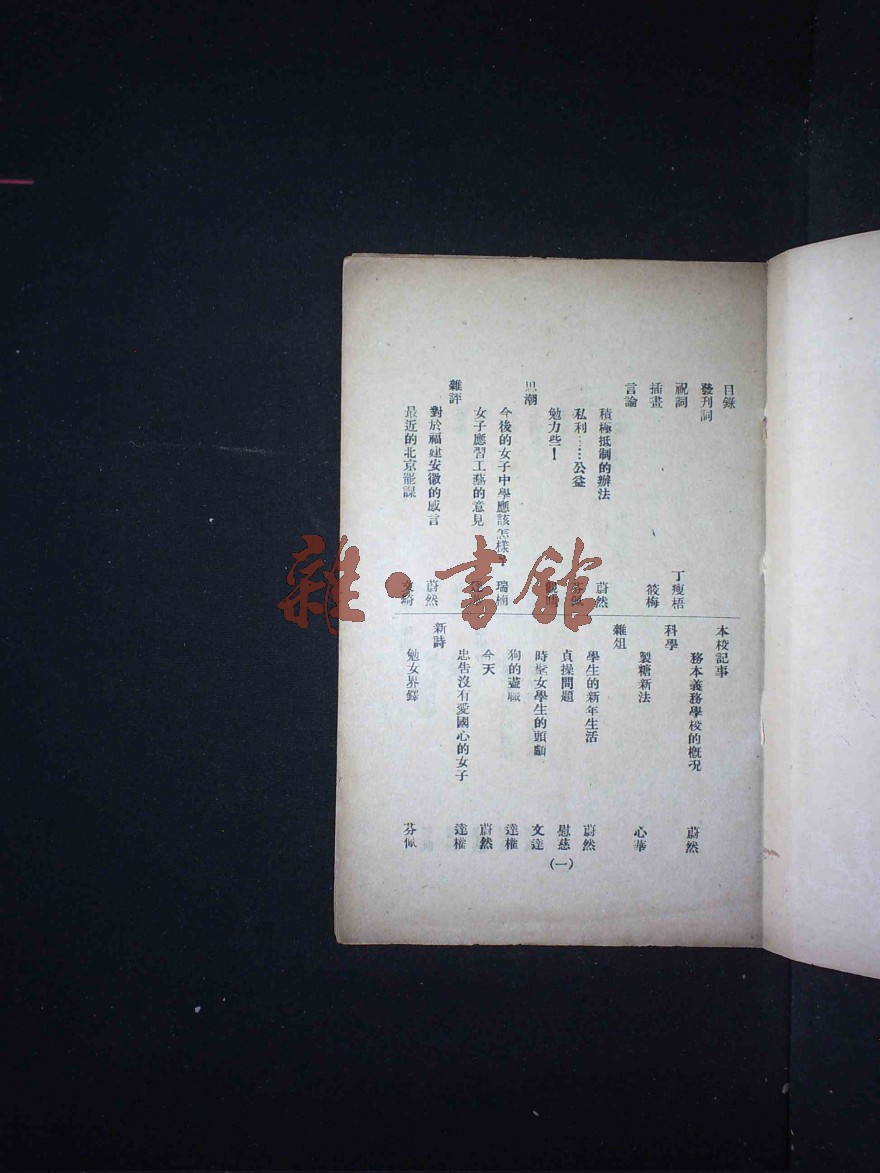 目錄
發刊詞
祝詞 丁瘦梧
插畫 筱梅
言論
積極抵制的辦法 蔚然
私利……公益 芬佩
勉力些！
思潮
今後的女子中學應該怎樣 瑞楠
女子應習工藝的意見
雜評
對於福建安徽的感言 蔚然
最近的北京罷課 文綺
本校記事
務本義務學校的概況 蔚然
科學
製糖新法 心華
雜俎
學生的新年生活 蔚然
貞操問題 慰慈
時髦女學生的頭顱 文達
狗的盡職 達權
今天 蔚然
忠告沒有愛國心的女子 達權
新詩
勉女界鐸 芬佩
(一)
雜·書館